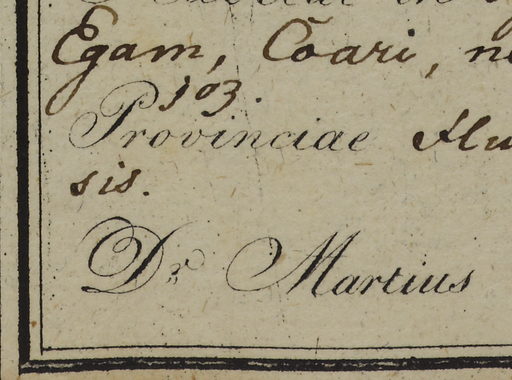 Egam, Cōari,
103.
Provinciae
sis.
Dr Martius